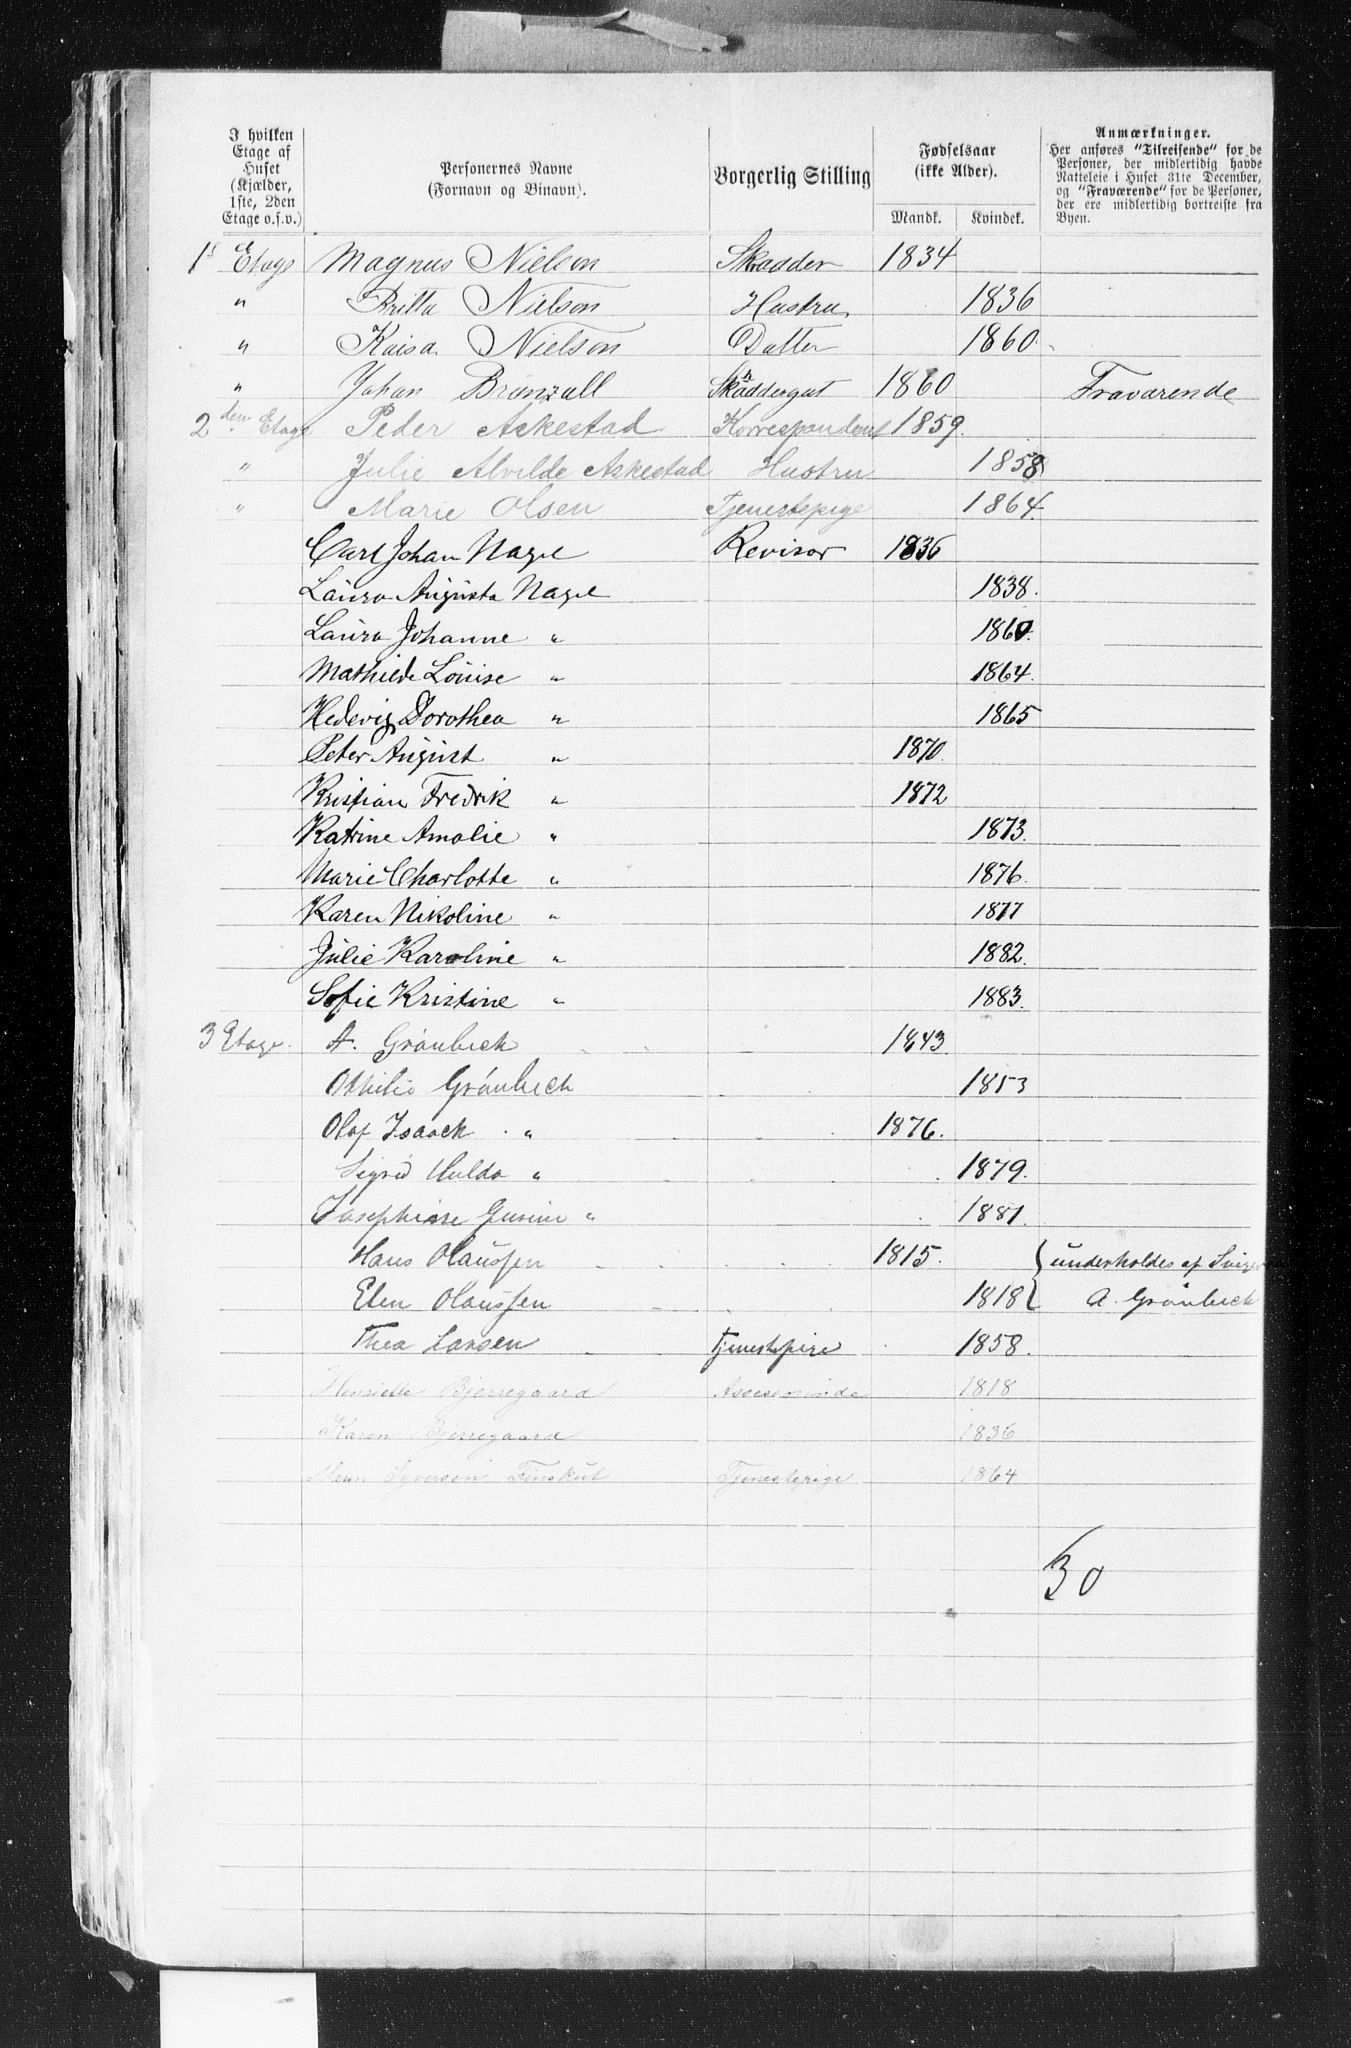 I hvilken Etage af Huset (Kjælder, 1ste, 2den Etage o.s.v.)
Personernes Navne (Fornavn og Binavn).
Borgerlig Stilling
Fødselsaar (ikke Alder).
Mandk. Kvindek.
Anmærkninger.
Her anføres "Tilreisende" for de Personer, der midlertidig havde Natteleie i Huset 31te December, og "Fraværende" for de Personer, der ere midlertidig bortreiste fra Byen.
1st Etage Magnus Nielson Skradder 1834
" Britta Nielson Hustru 1836
" Kaisa Nielson Datter 1860
" Johan Skraddergut 1860 Fraværende
2den Etage Peder Askestad Korrespondent 1859.
" Julie Alvilde Askestad Hustru 1858
" Marie Olsen Tjenestepige 1864.
Carl Johan Nagel Revisor 1836
Laura Augusta Nagel 1838.
Laura Johanne " 1860.
Mathilde Louise " 1864.
Hedevig Dorothea " 1865
Peter August " 1870.
Kristian Fredrik " 1872
Katrine Amalie " 1873.
Marie Charlotte " 1876.
Karen Nikoline " 1877
Julie Karoline " 1882.
Sofie Kristine " 1883.
3 Etage. A. Grønbech 1843.
Othilie Grønbech 1853
Olaf Isaack " 1876.
Sigrid Hulda " 1879.
Josephine Gurine " 1881.
Hans Olaussen 1815. underholdes af
Elen Olaussen 1818 A. Grønbech
Thea Larsen Tjenestepige 1858.
Henriette Bjerregaard Assessorinde 1818
Karen Bjerregaard 1836
Syverson Tjenestepige 1864
30